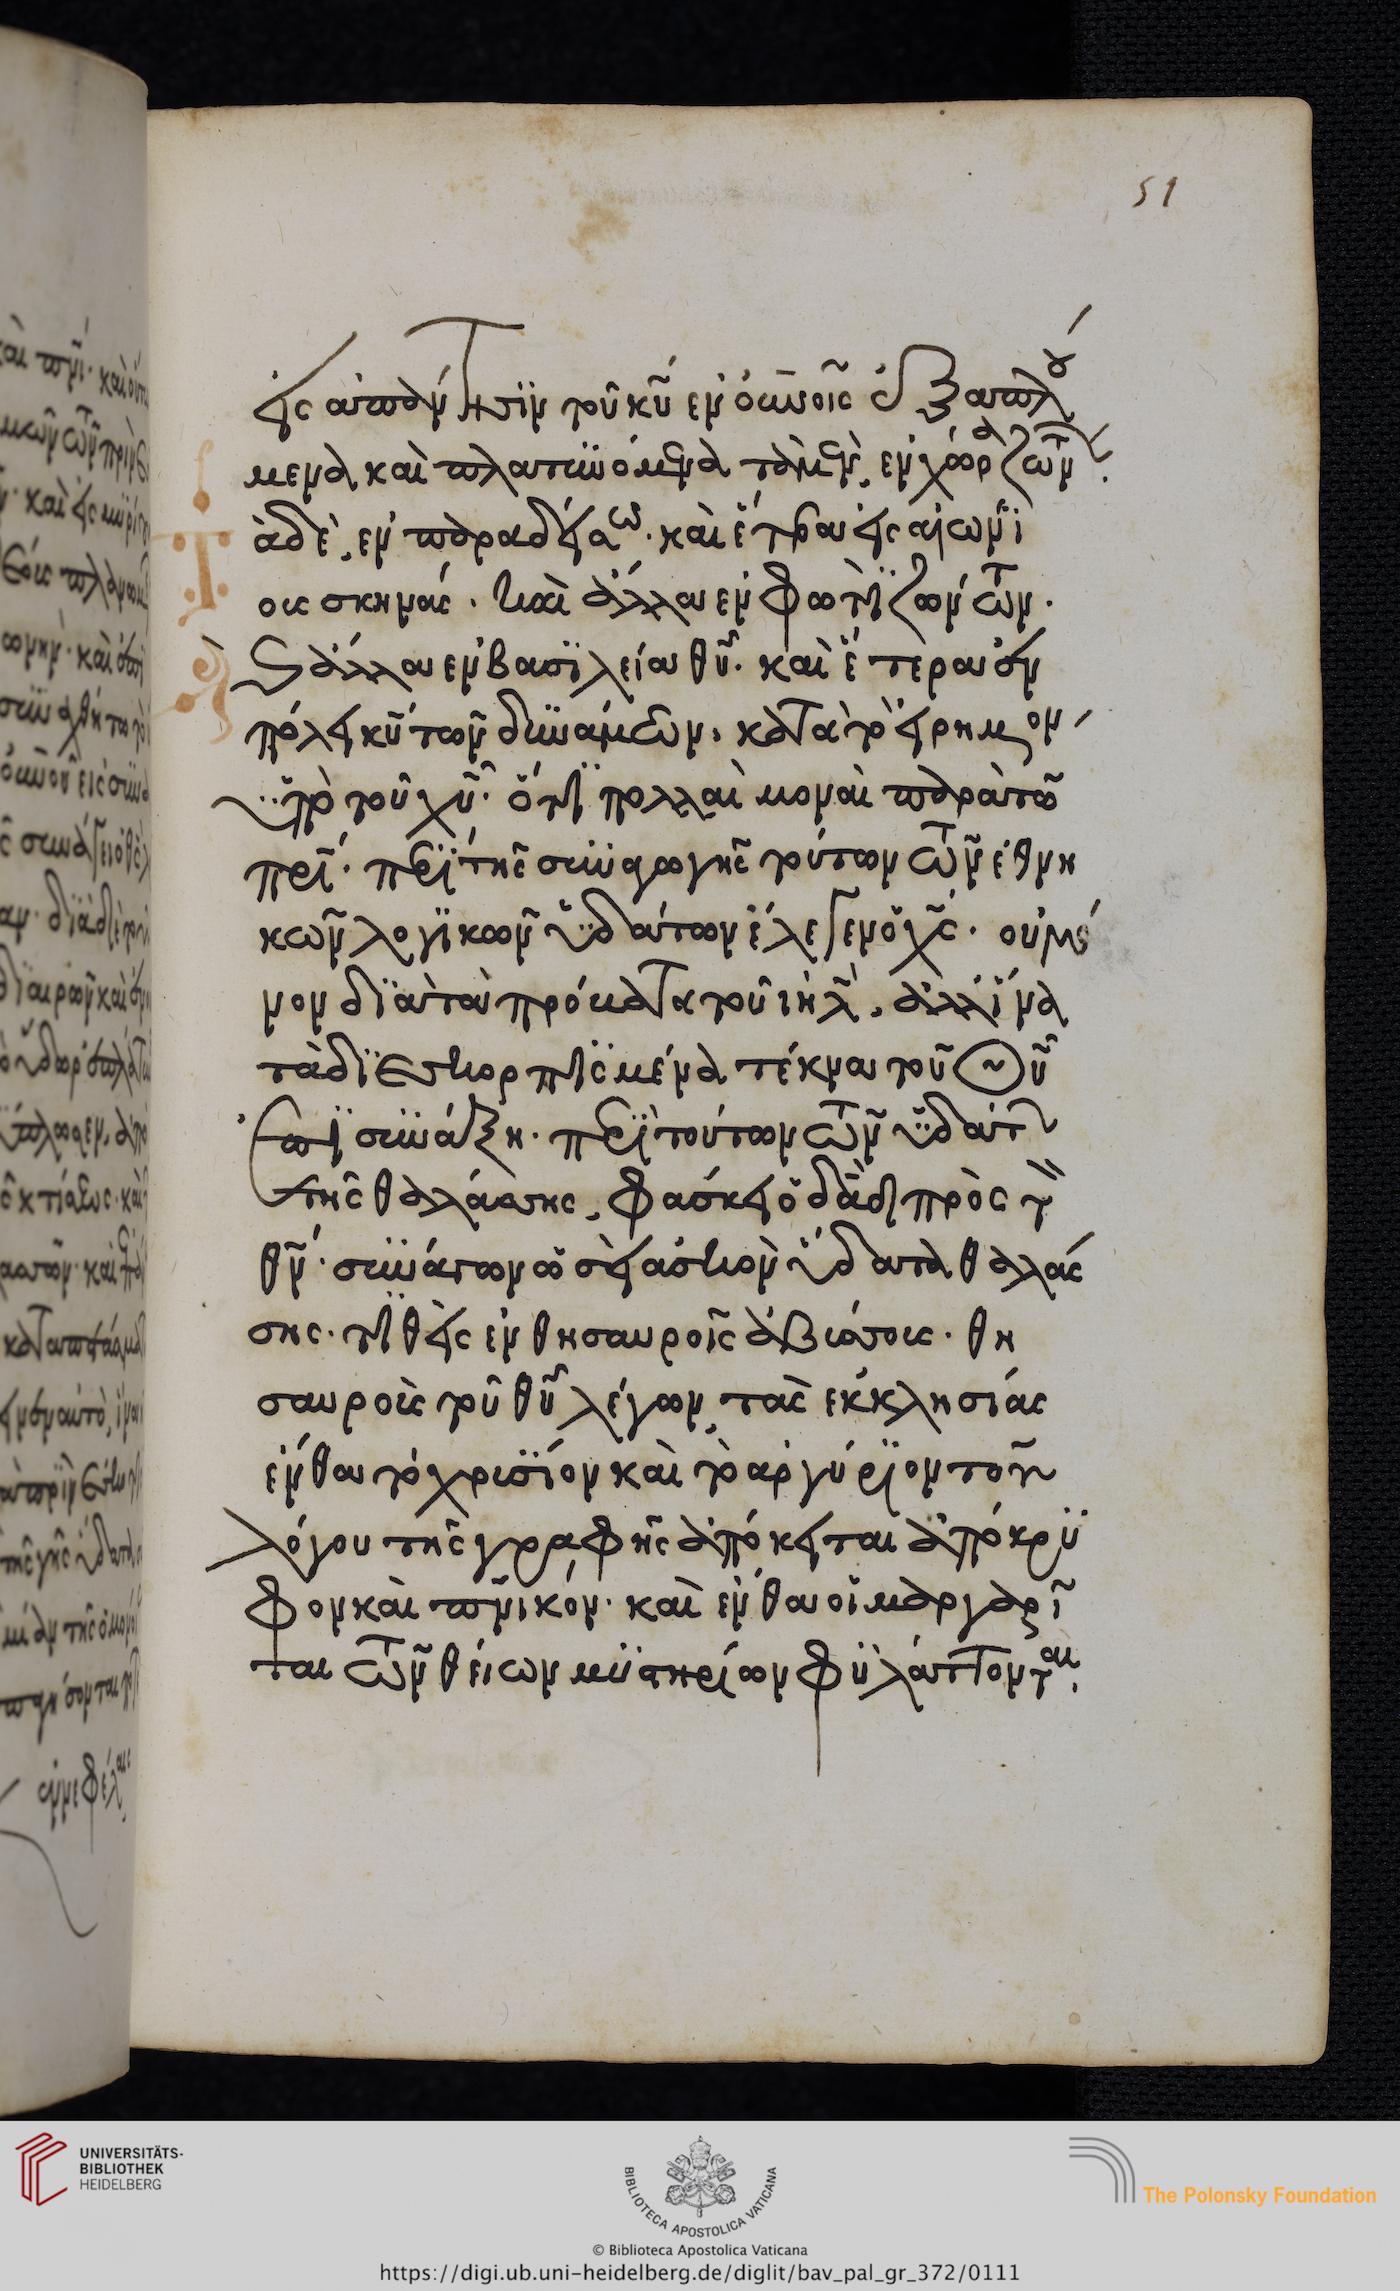 51
εἰς ἀπάντησιν τοῦ κυ̅ ἐν οὐ̅νοῖς ἐξαπλού
μενα καὶ πλατυνόμενα τὰ μὲν, ἐν χώρα ζώντων.
τὰ δὲ, ἐν παραδείσω· καὶ ἕτερα εἰς αἰωνί
οις σκηναῖς. καὶ ἄλλα ἐν φωτὶ ζώντων.
καὶ ἄλλα ἐν βασιλεία θυ̅· καὶ ἕτερα ἐν
πόλει κυ̅ τῶν δυνάμεων, κατὰ τὸ εἰρημένον
ὑπὸ τοῦ χυ̅· ὅτι πολλαὶ μοναὶ παρὰ τῶ
πρι̅· περὶ τῆς συναγωγῆς τούτων τῶν ἐθνι
κῶν λογικῶν ὑδάτων ἔλεγεν ὁ χς̅· οὐ μό
νον διὰ τὰ πρόβατα τοῦ ιηλ̅, ἀλλ' ἵνα
τὰ διεσκορπισμένα τέκνα τοῦ θυ̅
ἐπισυνάξη· περὶ τούτων τῶν ὑδάτων
τῆς θαλάσσης, φάσκει ὁ δαδ̅ πρὸς τὸν
θν̅· συνάγων ὡσεὶ ἀσκὸν ὕδατα θαλάσ
σης· τιθεὶς ἐν θησαυροῖς ἀβύσσοις· θη
σαυροὺς τοῦ θυ̅ λέγων, τὰς ἐκκλησίας
ἔνθα τὸ χρυσίον καὶ τὸ ἀργύριον τοῦ
λόγου τῆς γραφῆς ἀπόκειται ἀπόκρυ
φον καὶ πν̅ικόν· καὶ ἔνθα οἱ μαργαρῖ
ται τῶν θείων μυστηρίων φυλάττονται.
UNIVERSITÄTS-
BIBLIOTHEK
HEIDELBERG
BIBLIOTECA APOSTOLICA VATICANA
The Polonsky Foundation
© Biblioteca Apostolica Vaticana
https://digi.ub.uni-heidelberg.de/diglit/bav_pal_gr_372/0111